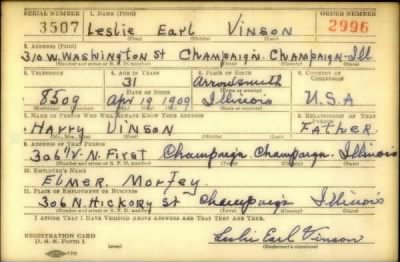 SERIAL NUMBER 1. NAME (Print) ORDER NUMBER
3507 Leslie Earl Vinson 2996
2. ADDRESS (Print)
310 W. Washington St Champaign. Champaign-Ill
3. TELEPHONE 4. AGE IN YEARS 5. PLACE OF BIRTH 6. COUNTRY OF CITIZENSHIP
31 Arrowsmith
8509 DATE OF BIRTH
Apr 19 1909 Illinois U.S.A
7. NAME OF PERSON WHO WILL ALWAYS KNOW YOUR ADDRESS 8. RELATIONSHIP OF THAT PERSON
Harry Vinson Father
9. ADDRESS OF THAT PERSON
N. First Champaign Champaign Illinois
10. EMPLOYER'S NAME
Elmer
11. PLACE OF EMPLOYMENT OR BUSINESS
306 N. Hickory St Champaign Illinois
I AFFIRM THAT I HAVE VERIFIED ABOVE ANSWERS AND THAT THEY ARE TRUE.
REGISTRATION CARD
D. S. S. Form 1
Leslie Earl Vinson